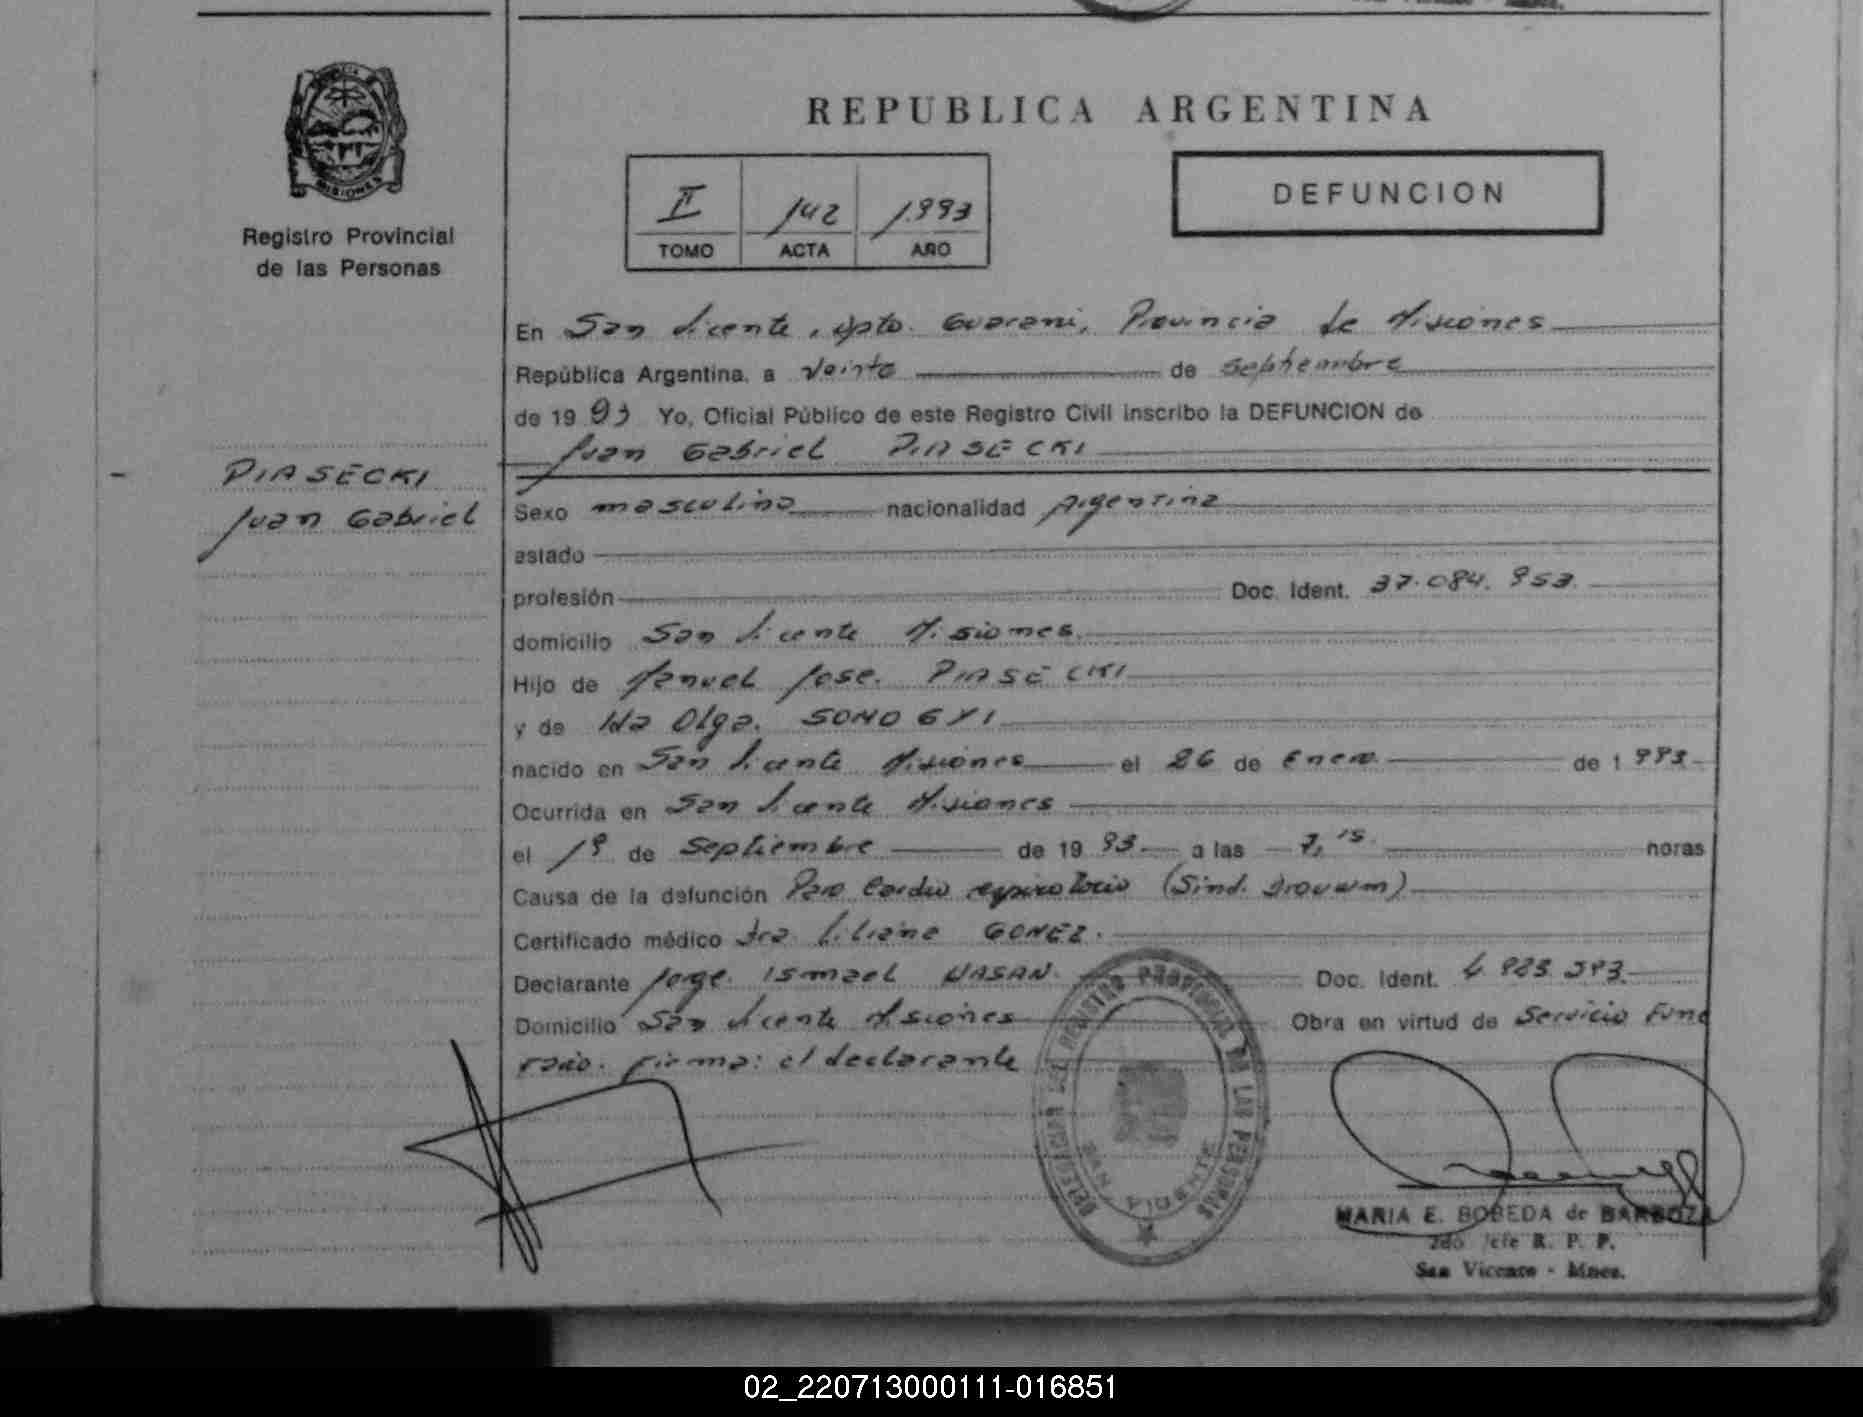 REPUBLICA ARGENTINA
MISIONES
Registro Provincial
de las Personas
II 142 1993
TOMO ACTA AÑO
DEFUNCION
En San Vicente, Dpto. Guarani, Provincia de Misiones
República Argentina, a veinte de septiembre
de 1993 Yo, Oficial Público de este Registro Civil inscribo la DEFUNCION de
Juan Gabriel PIASECKI
PIASECKI
Juan Gabriel
Sexo masculino nacionalidad Argentina
estado
profesión Doc. Ident. 37.084.953.
domicilio San Vicente Misiones.
Hijo de Manuel Jose. PIASECKI
y de Ida Olga. SOMOGYI
nacido en San Vicente Misiones el 26 de Enero de 1993
Ocurrida en San Vicente Misiones
el 19 de Septiembre de 1993 a las 7,15 horas
Causa de la defunción Paro Cardio respiratorio (Sind. Drouwm)
Certificado médico Dra. Liliana GOMEZ.
Declarante Jorge Ismael HASAN. Doc. Ident.
Domicilio San Vicente Misiones Obra en virtud de Servicio Fune
rario. Firma: el declarante
DELEGACION DEL REGISTRO PROVINCIAL DE LAS PERSONAS
SAN VICENTE
MARIA E. BOBEDA de BARBOZA
2do. Jefe R. P. P.
San Vicente - Mnes.
02_220713000111-016851